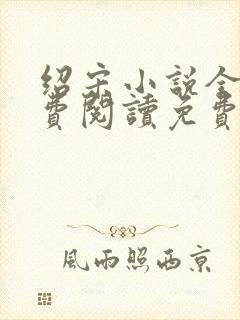 绍宋小说全
費閱讀免費
風雨照西京